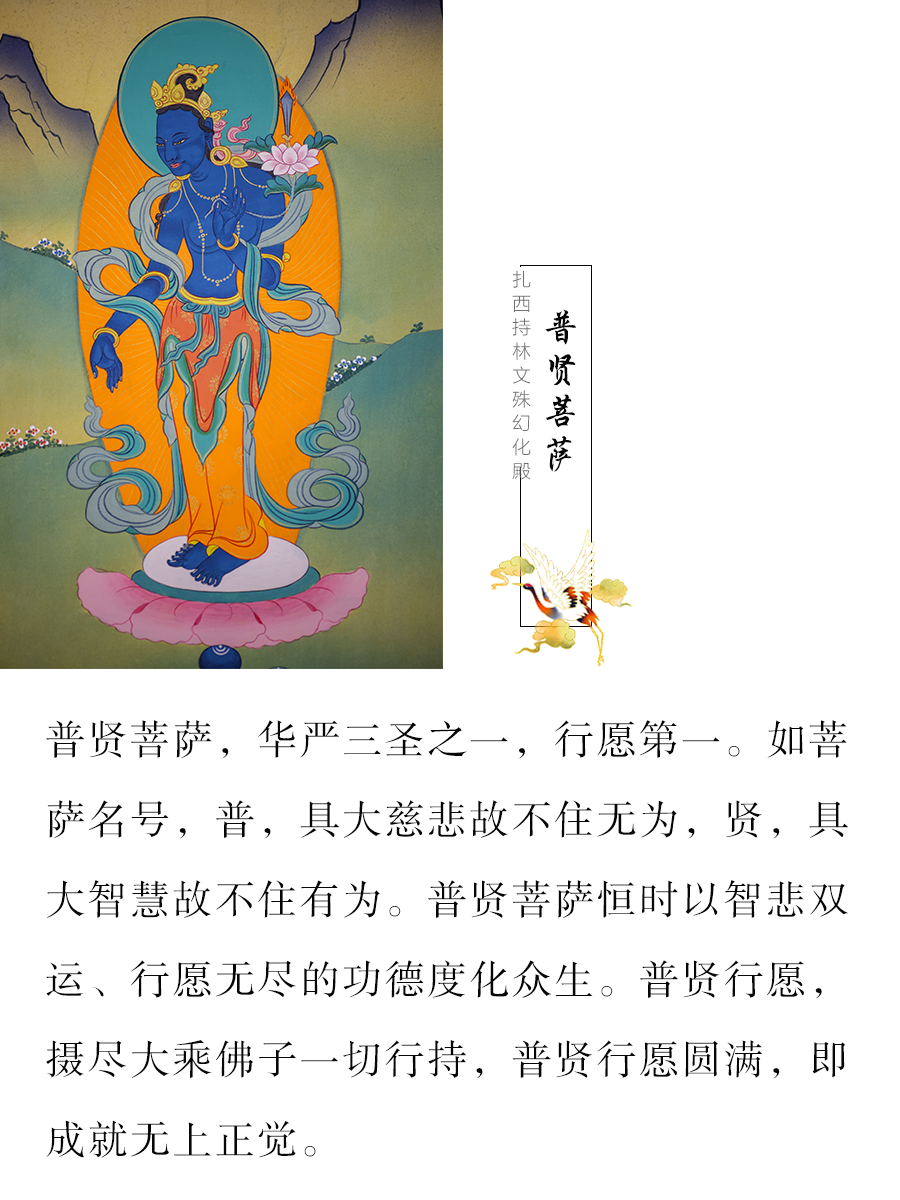 普贤菩萨
扎西持林文殊幻化殿
普贤菩萨，华严三圣之一，行愿第一。如菩
萨名号，普，具大慈悲故不住无为，贤，具
大智慧故不住有为。普贤菩萨恒时以智悲双
运、行愿无尽的功德度化众生。普贤行愿，
摄尽大乘佛子一切行持，普贤行愿圆满，即
成就无上正觉。